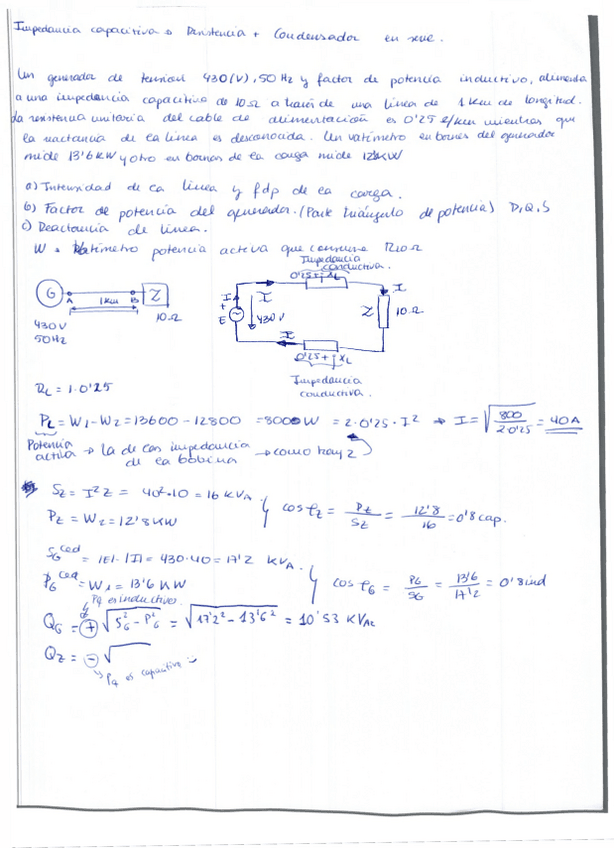 Impedancia capacitiva → Resistencia + Condensador en serie.
Un generador de tensión 430(V), 50 Hz y factor de potencia inductivo, alimenta
a una impedancia capacitiva de 10Ω a través de una línea de 1 Km de longitud.
La resistencia unitaria del cable de alimentación es 0'25 Ω/km mientras que
la reactancia de la línea es desconocida. Un vatímetro en bornes del generador
mide 13'6 KW y otro en bornes de la carga mide 12'8 KW
a) Intensidad de la línea y fdp de la carga.
b) Factor de potencia del generador. (Park triángulo de potencia) P, Q, S
c) Reactancia de línea.
W = Vatímetro potencia activa que consume 10Ω
Impedancia
conductiva.
0'25 + XL
G A 1Km B Z
10Ω
430V
50Hz
I I I
+ E 430V Z 10Ω
I
0'25 + XL
Impedancia
conductiva.
RL = 1·0'25
PL = W1 - W2 = 13600 - 12800 = 800 W = 2·0'25·I² → I = √(800 / 2·0'25) = 40A
Potencia
activa → la de las impedancia → como hay 2
de la bobina
SZ = I²Z = 40²·10 = 16 KVA.
PZ = W2 = 12'8 KW
cos φZ = PZ / SZ = 12'8 / 16 = 0'8 cap.
SG ced = |E|·|I| = 430·40 = 17'2 KVA.
PG ced = W1 = 13'6 KW
cos φG = PG / SG = 13'6 / 17'2 = 0'8 ind
Pq es inductivo.
QG = + √(SG² - PG²) = √(17'2² - 13'6²) = 10'53 KVAr
QZ = - √
→ Pq es capacitiva